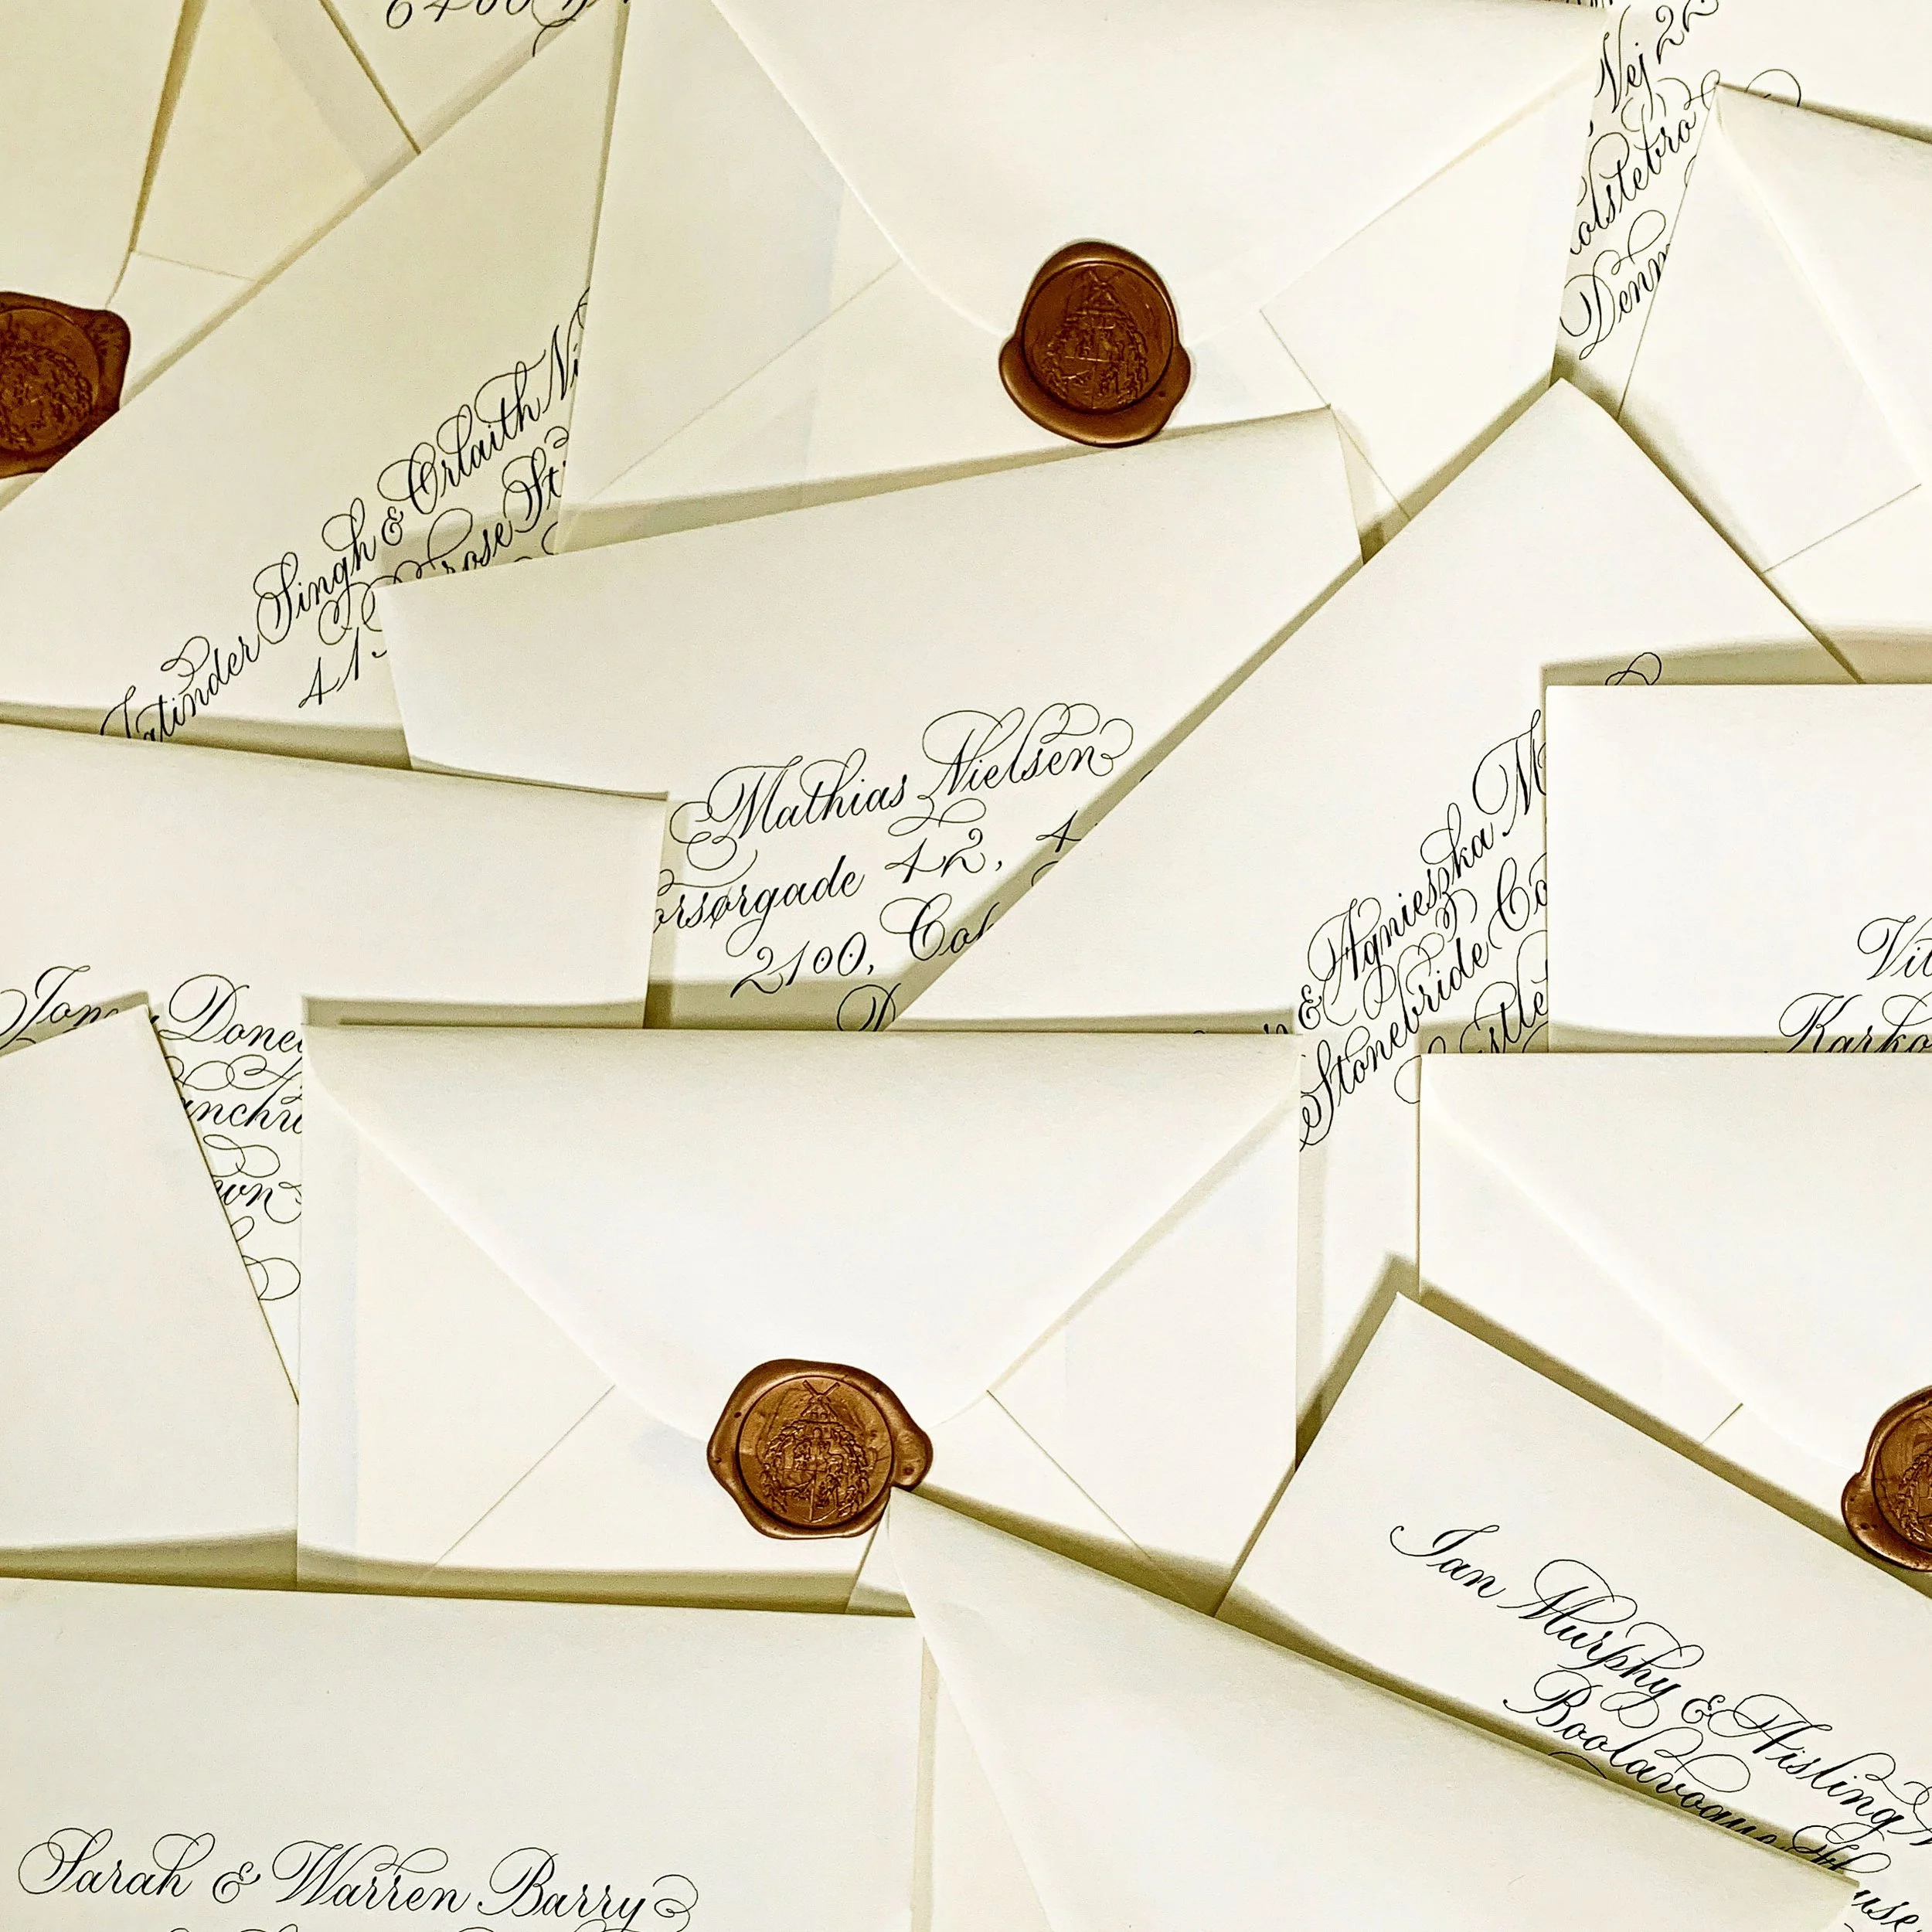 6400
Vej 22
Denm
Jatinder Singh & Orlaith Ni
41
rose St
Mathias Nielsen
orsørgade 42, 4
2100, Co
D
& Agnieszka M
Stonebride Co
stle
Vit
Karko
Jon Done
wn
Ian Murphy & Aisling
Boolavogue
use
Sarah & Warren Barry